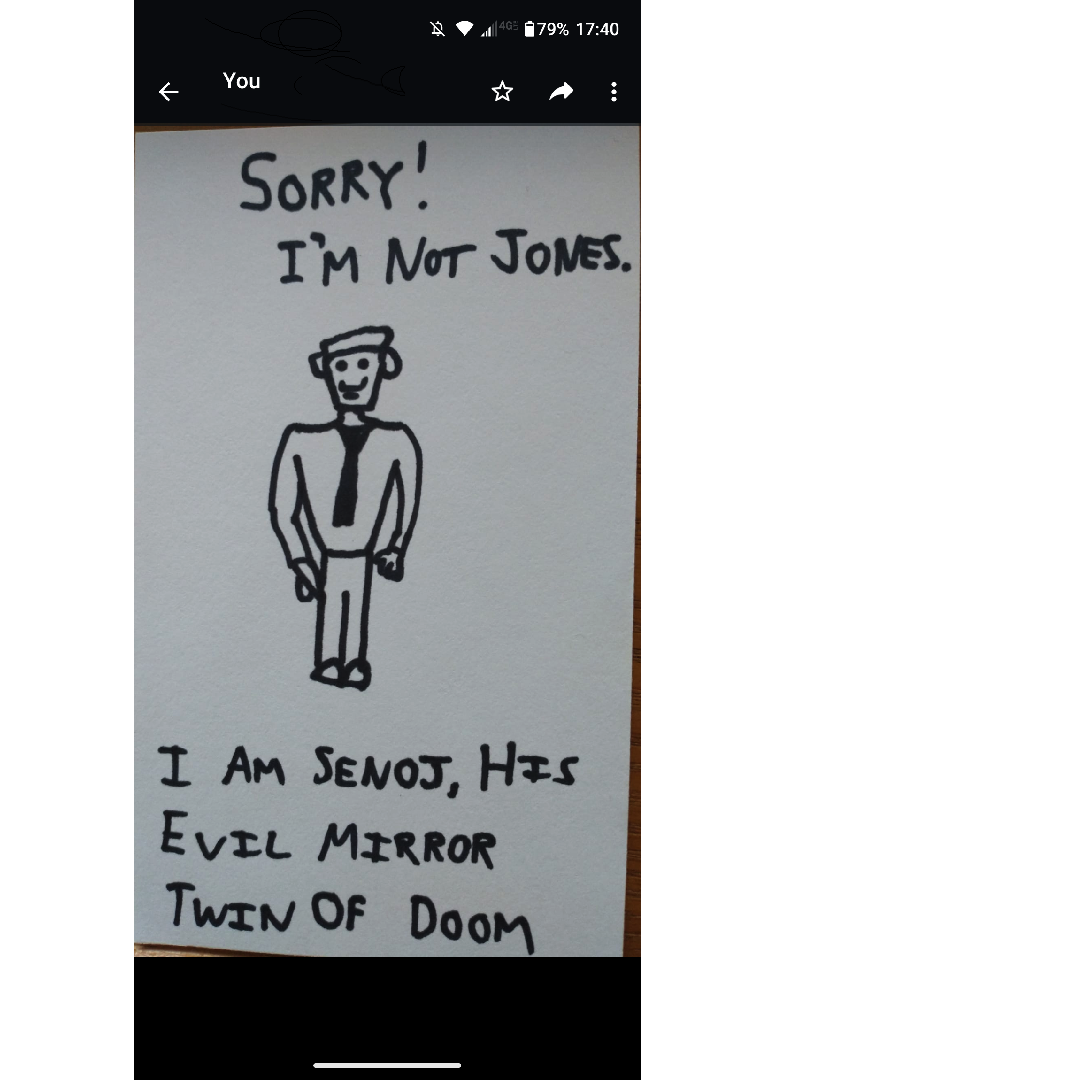 4G 79% 17:40
You
SORRY!
I'M NOT JONES.
I AM SENOJ, HIS
EVIL MIRROR
TWIN OF DOOM